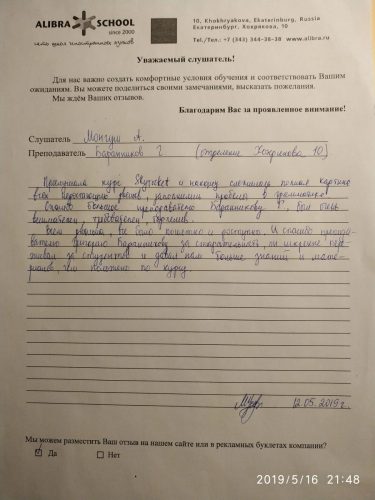 ALIBRA SCHOOL
since 2000
10, Khokhryakova, Ekaterinburg, Russia
Екатеринбург, Хохрякова, 10
Tel./Тел.: +7 (343) 344-38-38 www.alibra.ru
Уважаемый слушатель!
Для нас важно создать комфортные условия обучения и соответствовать Вашим
ожиданиям. Вы можете поделиться своими замечаниями, высказать пожелания.
Мы ждём Ваших отзывов.
Благодарим Вас за проявленное внимание!
Слушатель Монгуш А.
Преподаватель Баранников Г. (отделение Хохрякова 10)
Прослушала курс и наконец сложилась полная картина
всех недостающих рядов, заполнились пробелы в грамматике!
Спасибо большое преподавателю Баранникову Г. Был очень
внимателен, требователен, терпелив.
Всем доволна, все было понятно и доступно. И спасибо препода-
вателю Григорию Баранникову за старательность, он искренне пере-
живал за студентов и давал нам больше знаний и мате-
риалов, чем положено по курсу.
12.05.2019г.
Мы можем разместить Ваш отзыв на нашем сайте или в рекламных буклетах компании?
Да Нет
2019/5/16 21:48